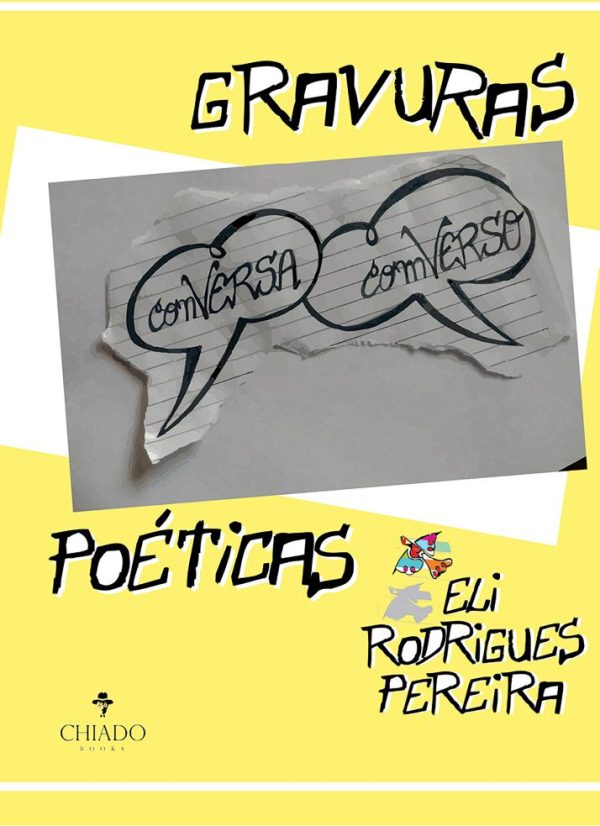 GRAVURAS
comVERSA
comVERSO
POÉTICAS
ELI
RODRIGUES
PEREIRA
CHIADO
BOOKS